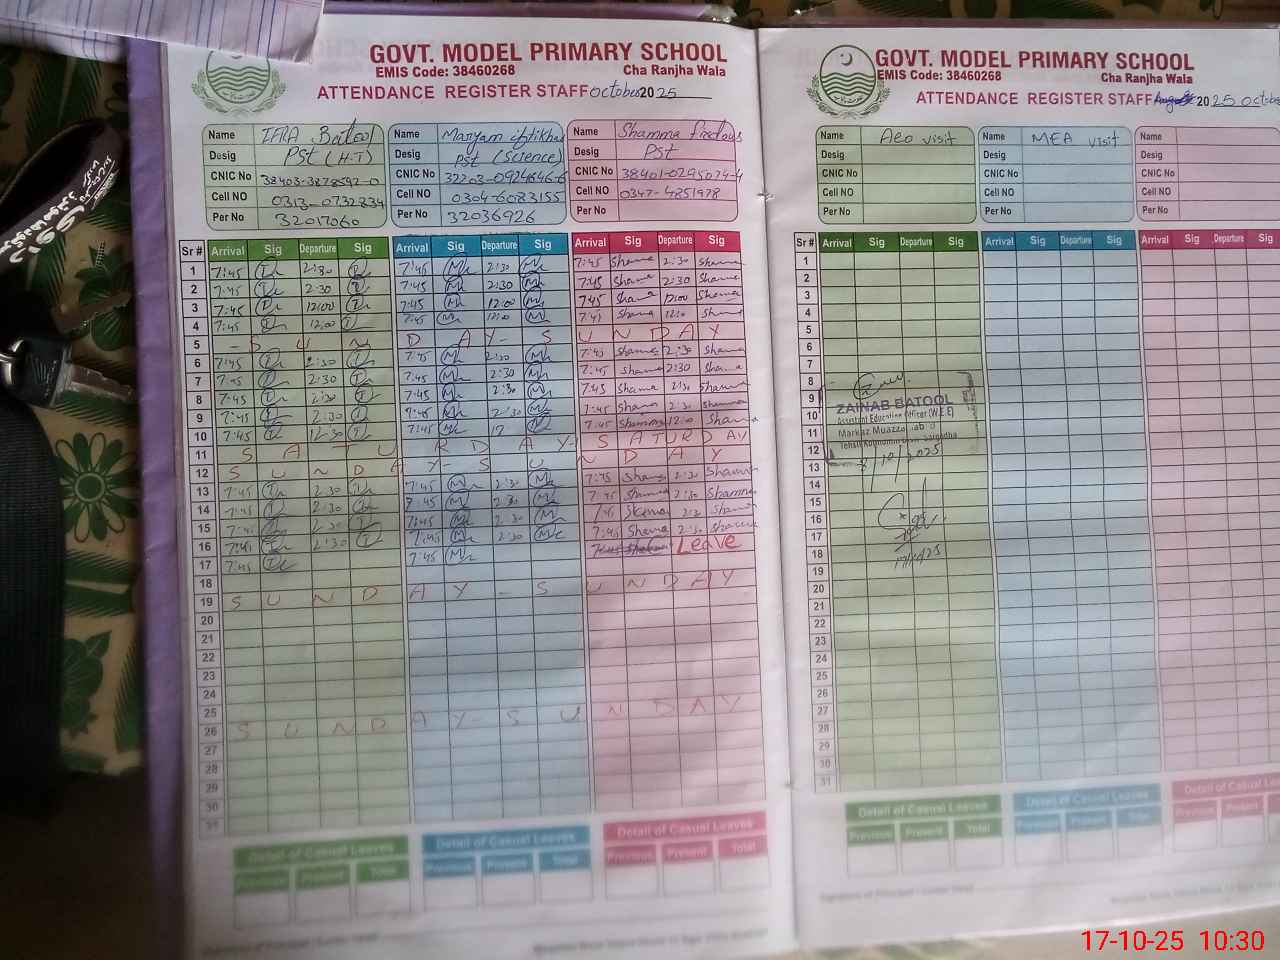 GOVT. MODEL PRIMARY SCHOOL
EMIS Code: 38460268 Cha Ranjha Wala
ATTENDANCE REGISTER STAFF October 2025
Name IFRA Batool Name Maryam iftikhar Name Shamma firdous
Desig Pst (H-T) Desig Pst (Science) Desig Pst
CNIC No 38403-3878592-0 CNIC No 32203-0924646-6 CNIC No 38401-0295074-4
Cell NO 0313-0732834 Cell NO 0304-6083155 Cell NO 0347-4851978
Per No 32017060 Per No 32036926 Per No
Sr # Arrival Sig Departure Sig Arrival Sig Departure Sig Arrival Sig Departure Sig
1 7:45 2:30 7:45 2:30 7:45 Shama 2:30 Shama
2 7:45 2:30 7:45 2:30 7:45 Shama 2:30 Shama
3 7:45 12:00 7:45 12:00 7:45 Shama 12:00 Shama
4 7:45 12:00 7:45 12:00 7:45 Shama 12:00 Shama
5 - S U N D A Y - S U N D A Y
6 7:45 2:30 7:45 2:30 7:45 Shama 2:30 Shama
7 7:45 2:30 7:45 2:30 7:45 Shama 2:30 Shama
8 7:45 2:30 7:45 2:30 7:45 Shama 2:30 Shama
9 7:45 2:30 7:45 2:30 7:45 Shama 2:30 Shama
10 7:45 12:30 7:45 12 7:45 Shama 12:00 Shama
11 S A T U R D A Y - S A T U R D A Y
12 S U N D A Y - S U N D A Y
13 7:45 2:30 7:45 2:30 7:45 Shama 2:30 Shama
14 7:45 2:30 7:45 2:30 7:45 Shama 2:30 Shama
15 7:45 2:30 7:45 2:30 7:45 Shama 2:30 Shama
16 7:45 2:30 7:45 2:30 7:45 Shama 2:30 Shama
17 7:45 7:45 Leave
18
19 S U N D A Y - S U N D A Y
20
21
22
23
24
25
26 S U N D A Y - S U N D A Y
27
28
29
30
31
Detail of Casual Leaves Detail of Casual Leaves Detail of Casual Leaves
Previous Present Total Previous Present Total Previous Present Total
GOVT. MODEL PRIMARY SCHOOL
EMIS Code: 38460268 Cha Ranjha Wala
ATTENDANCE REGISTER STAFF 2025 October
Name Aeo visit Name MEA visit Name
Desig Desig Desig
CNIC No CNIC No CNIC No
Cell NO Cell NO Cell NO
Per No Per No Per No
Sr # Arrival Sig Departure Sig Arrival Sig Departure Sig Arrival Sig Departure Sig
1
2
3
4
5
6
7
8
9 ZAINAB BATOOL
10 Assistant Education Officer (W.E.E)
11 Markaz Muazzamabad
12 Tehsil Kotmomin Distt. Sargodha
13 8/10/2025
14
15
16
17
18 17/10/25
19
20
21
22
23
24
25
26
27
28
29
30
31
Detail of Casual Leaves Detail of Casual Leaves Detail of Casual Leaves
Previous Present Total Previous Present Total Previous Present
17-10-25 10:30